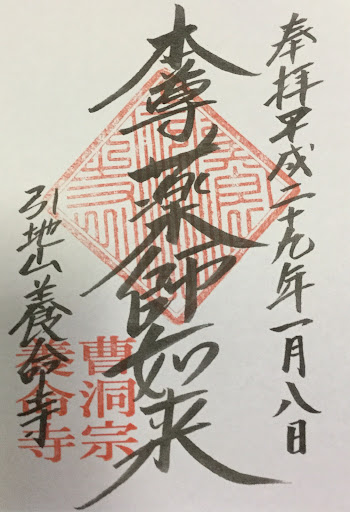 奉拝平成二十九年一月八日
本尊薬師如来
引地山養命寺
曹洞宗
養命寺